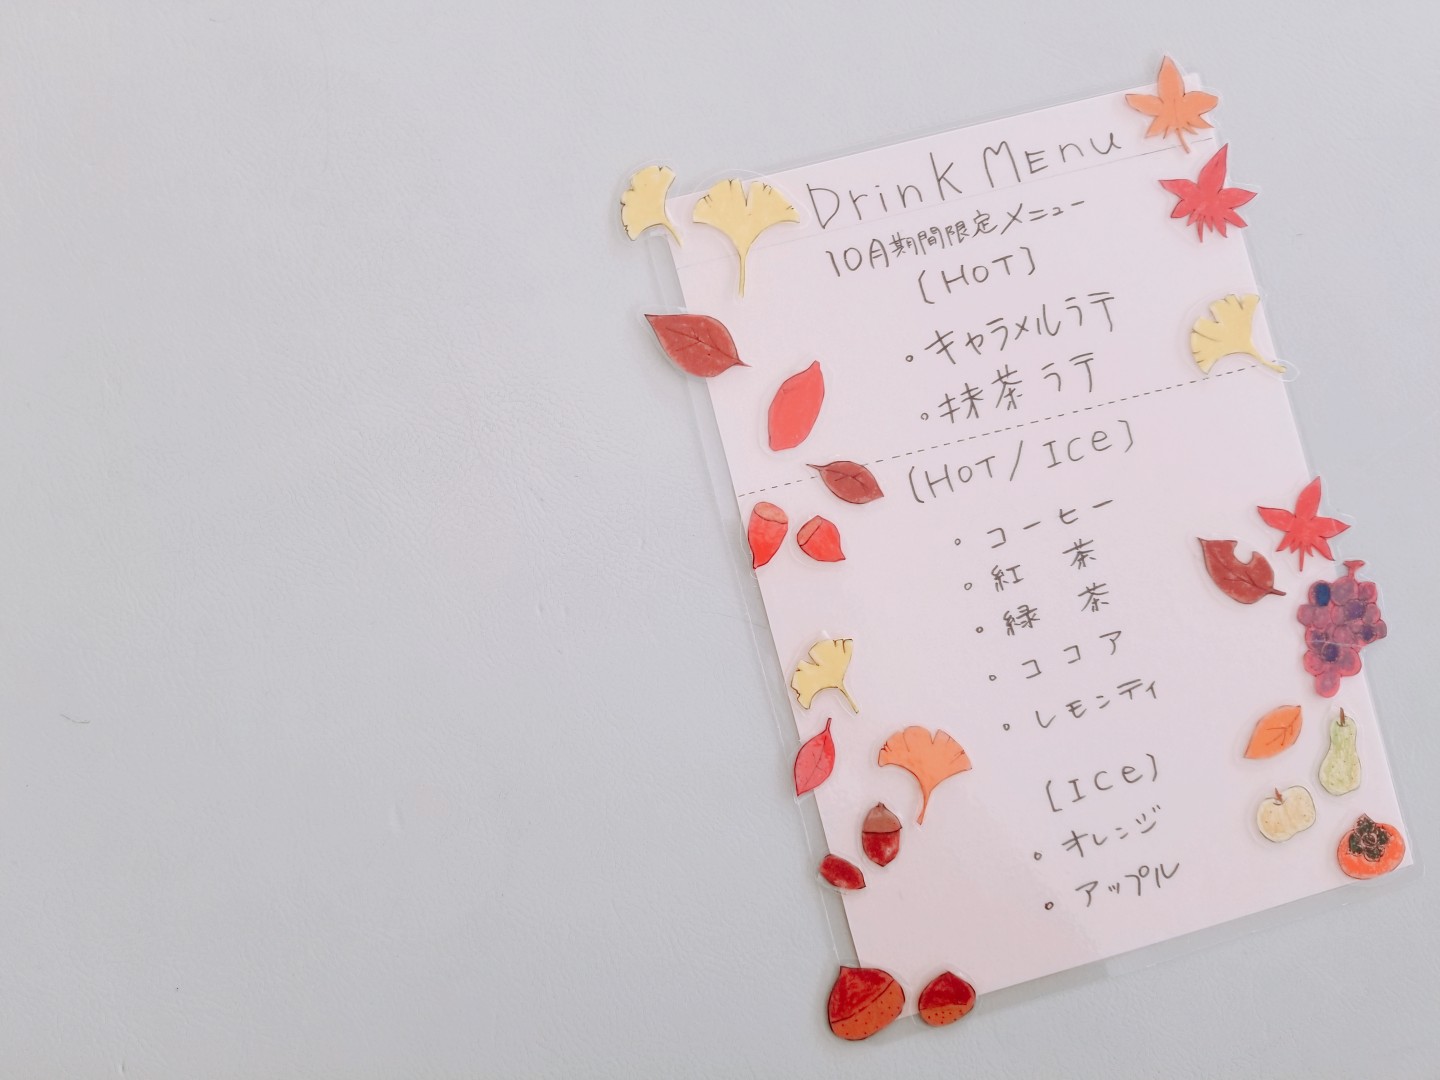 Drink MEnu
10月期間限定メニュー
[HOT]
。キャラメルラテ
。抹茶ラテ
[HOT/ICe]
。コーヒー
。紅 茶
。緑 茶
。ココア
。レモンティ
[ICe]
。オレンジ
。アップル